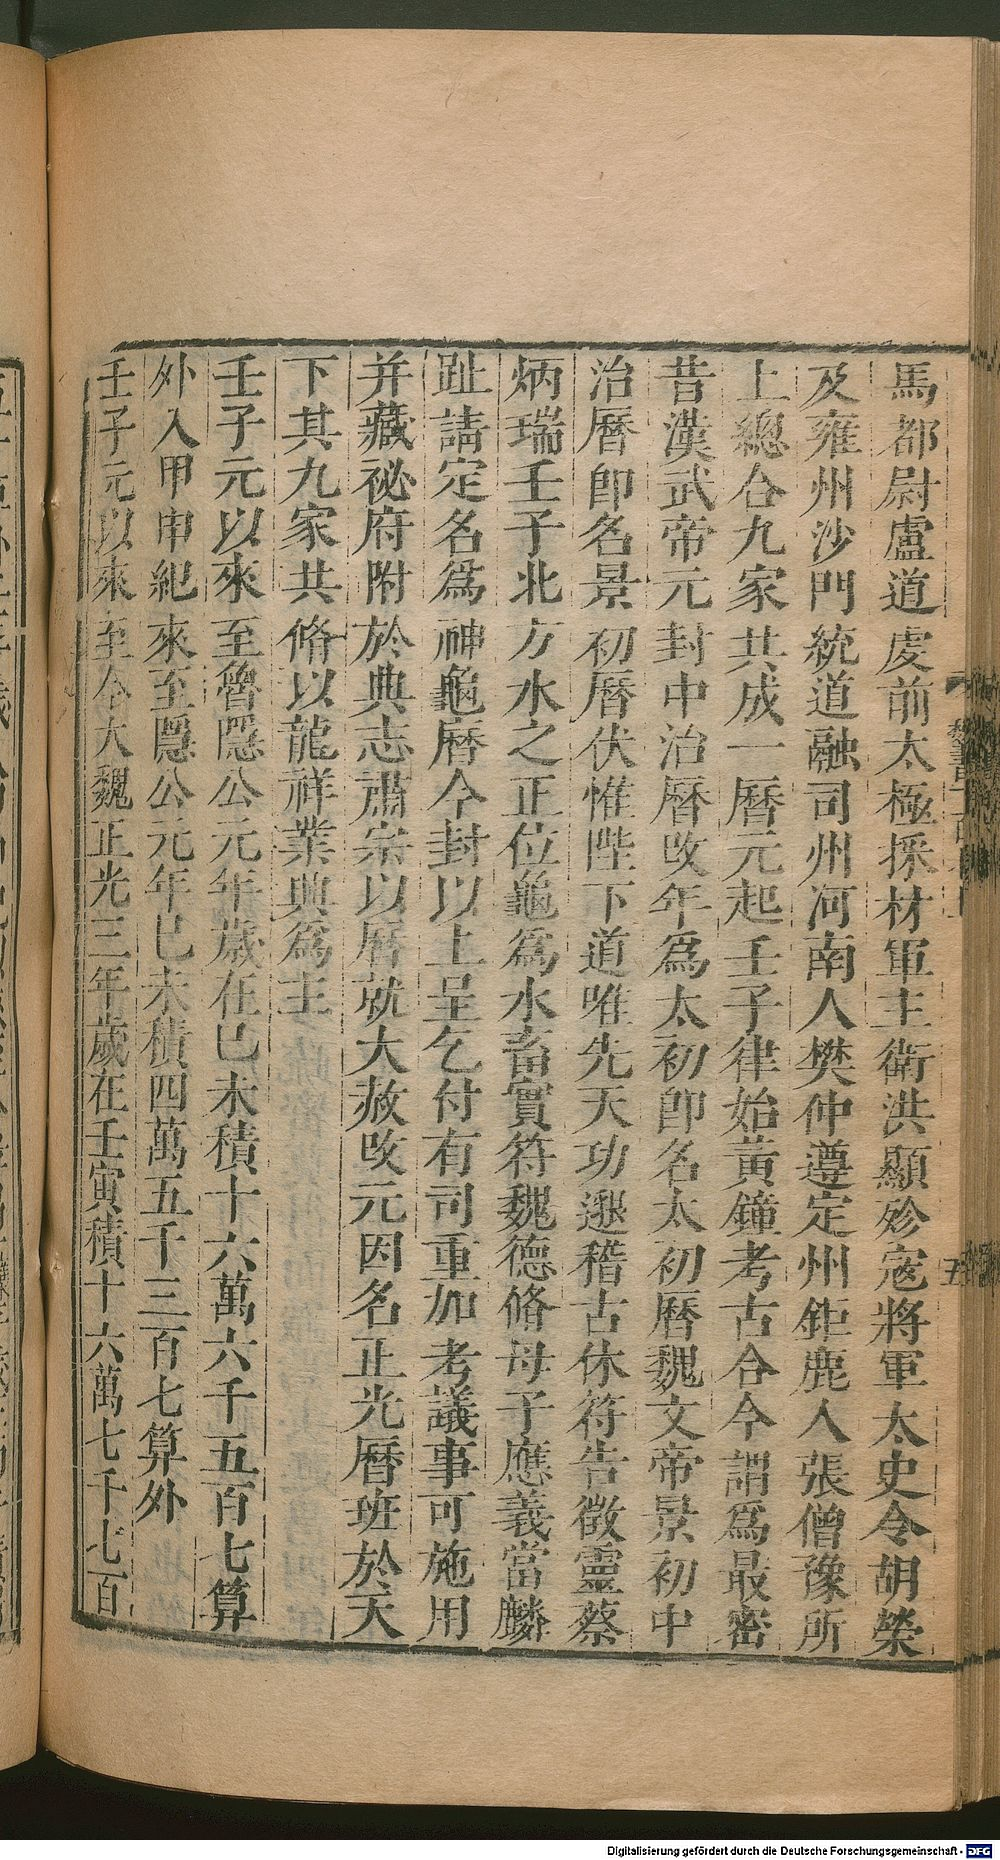 馬都尉盧道虔前太極採材軍主衛洪顯殄寇將軍太史令胡榮
及雍州沙門統道融司州河南人樊仲遵定州鉅鹿人張僧豫所
上總合九家共成一曆元起壬子律始黃鐘考古合今謂爲最密
昔漢武帝元封中治曆改年爲太初卽名太初曆魏文帝景初中
治曆卽名景初曆伏惟陛下道唯先天功邈稽古休符告徵靈蔡
炳瑞壬子北方水之正位龜爲水畜實符魏德脩母子應義當麟
趾請定名爲神龜曆今封以上呈乞付有司重加考議事可施用
并藏祕府附於典志肅宗以曆就大赦改元因名正光曆班於天
下其九家共脩以龍祥業興爲主
壬子元以來至魯隱公元年歲在己未積十六萬六千五百七算
外入甲申紀來至隱公元年己未積四萬五千三百七算外
壬子元以來至今大魏正光三年歲在壬寅積十六萬七千七百
五
Digitalisierung gefördert durch die Deutsche Forschungsgemeinschaft - DFG